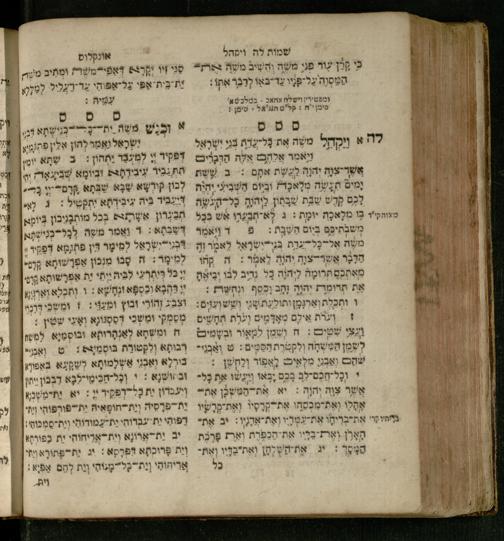 שמות לה ויקהל
כי קרן עור פני משה והשיב משה את
המסוה על פניו עד באו לדבר אתו :
ומפטירין וישלח אחאב · במלכים א׳
סימן י״ח ·
ס ס ס
לה א ויקהל משה את כל עדת בני ישראל
ויאמר אלהם אלה הדברים
אשר צוה יהוה לעשת אתם : ב ששת
ימים תעשה מלאכה וביום השביעי יהיה
לכם קדש שבת שבתון ליהוה כל העשה
בו מלאכה יומת : ג לא תבערו אש בכל
משבתיכם ביום השבת : פ ד ויאמר
משה אל כל עדת בני ישראל לאמר זה
הדבר אשר צוה יהוה לאמר : ה קחו
מאתכם תרומה ליהוה כל נדיב לבו יביאה
את תרומת יהוה זהב וכסף ונחשת :
ו ותכלת וארגמן ותולעת שני ושש ועזים :
ז וערת אילם מאדמים וערת תחשים
ועצי שטים : ח ושמן למאור ובשמים
לשמן המשחה ולקטרת הסמים : ט ואבני
שהם ואבני מלאים לאפוד ולחשן :
י וכל חכם לב בכם יבאו ויעשו את כל
אשר צוה יהוה : יא את המשכן את
אהלו ואת מכסהו את קרסיו ואת קרשיו
את בריחו את עמדיו ואת אדניו : יב את
הארן ואת בדיו את הכפרת ואת פרכת
המסך : יג את השלחן ואת בדיו ואת
כל
אונקלוס
סגי זיו יקרא דאפי משה ומתיב משה
ית בית אפי על אפוהי עד דעליל למללא
עמיה :
ס ס ס
א וכנש משה ית כל כנישתא דבני
ישראל ואמר להון אלין פתגמיא
דפקיד יי למעבד יתהון : ב שתא יומין
תתעביד עיבידתא וביומא שביעאה יהי
לכון קודשא שבא שבתא קדם יי כל
דיעביד ביה עיבידתא יתקטיל : ג לא
תבערון אשתא בכל מותבניכון ביומא
דשבתא : ד ואמר משה לכל כנישתא
דבני ישראל למימר דין פתגמא דפקיד יי
למימר : ה סבו מנכון אפרשותא קדם
יי כל דיתרעי לביה ייתי ית אפרשותא קדם
יי דהבא וכספא ונחשא : ו ותכלא וארגונא
וצבע זהורי ובוץ ומעזי : ז ומשכי דדכרי
מסמקי ומשכי דססגונא ואעי שטין :
ח ומשחא לאנהרותא ובוסמיא למשח
רבותא ולקטורת בוסמיא : ט ואבני
בורלא ואבני אשלמותא לשקעא באפודא
ובחושנא : י וכל חכימי לבא דבכון ייתון
ויעבדון ית כל דפקיד יי : יא ית משכנא
ית פרסיה וית חופאיה ית פורפוהי וית
דפוהי ית עברוהי ית עמודוהי וית סמכוהי :
יב ית ארונא וית אריחוהי ית כפורתא
וית פרוכתא דפרסא : יג ית פתורא וית
אריחוהי וית כל מנוהי וית לחם אפיא :
וית